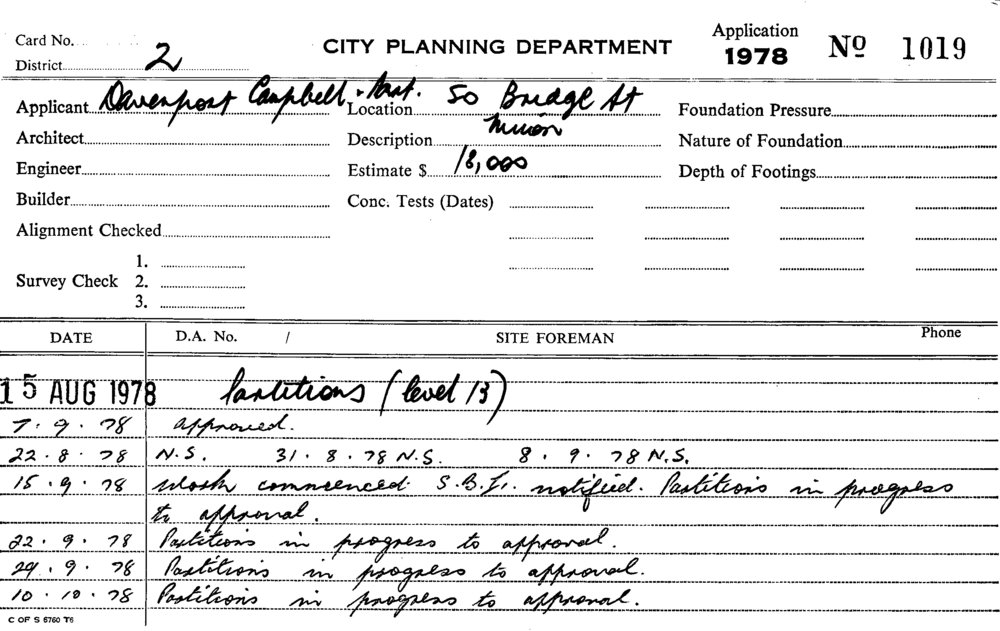 Card No.
District 2
CITY PLANNING DEPARTMENT
Application
1978
Nº 1019
Applicant Davenport Campbell + Part.
Location 50 Bridge St
Foundation Pressure
Architect
Description Minor
Nature of Foundation
Engineer
Estimate $ 18,000
Depth of Footings
Builder
Conc. Tests (Dates)
Alignment Checked
Survey Check 1.
2.
3.
DATE D.A. No. / SITE FOREMAN Phone
15 AUG 1978 Partitions (level 13)
7.9.78 approved.
22.8.78 N.S. 31.8.78 N.S. 8.9.78 N.S.
15.9.78 Work commenced. S.B.I. notified. Partitions in progress
to approval.
22.9.78 Partitions in progress to approval.
29.9.78 Partitions in progress to approval.
10.10.78 Partitions in progress to approval.
C OF S 6760 T6